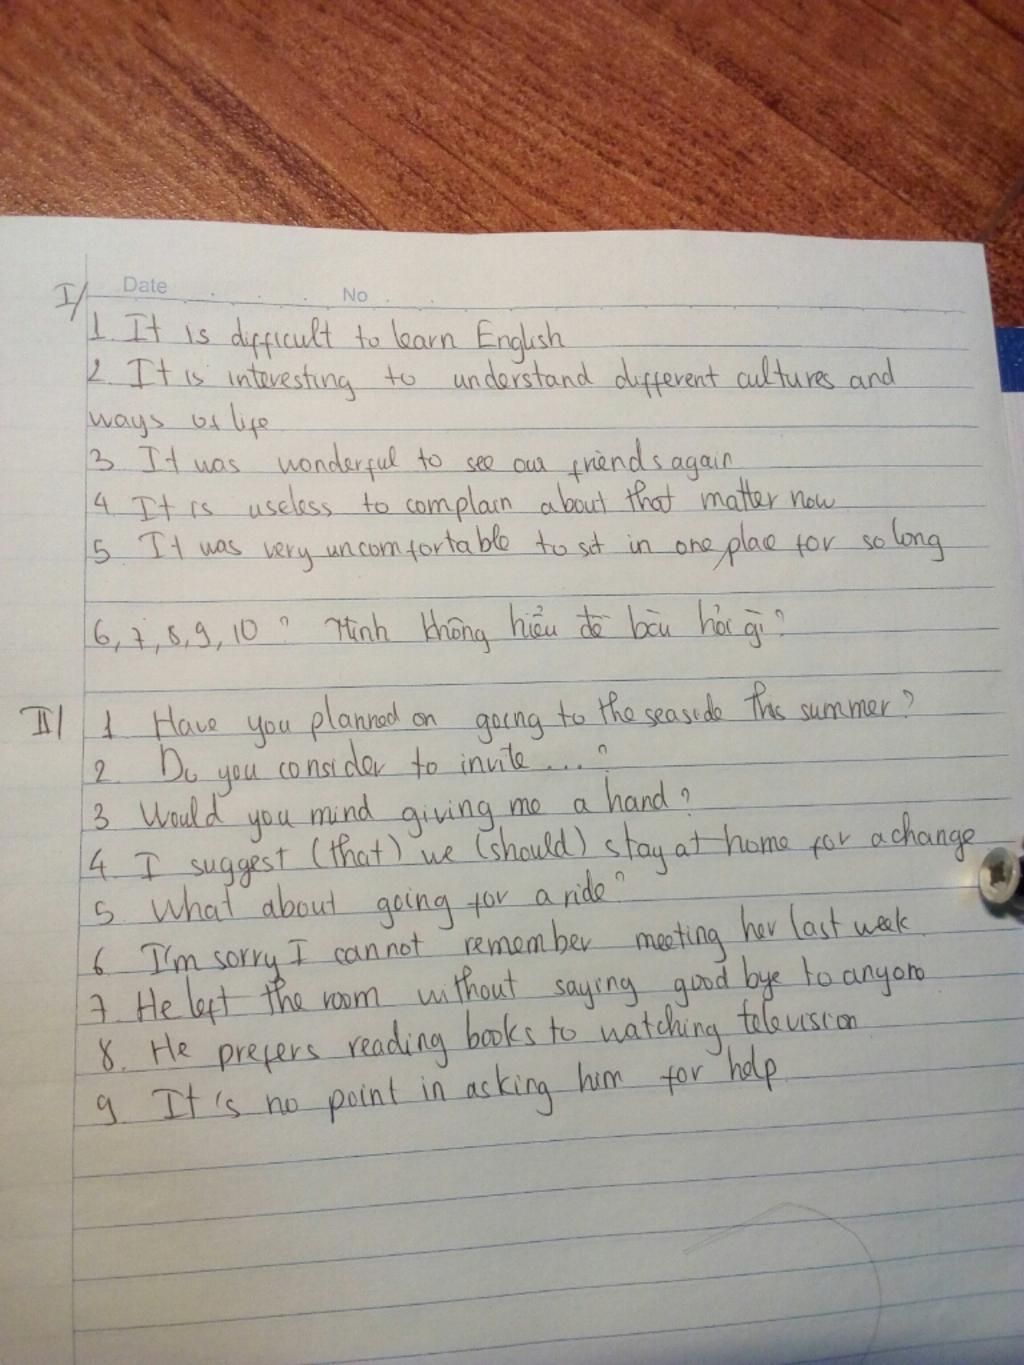 Date No
I/
1. It is difficult to learn English
2. It is interesting to understand different cultures and
ways of life
3. It was wonderful to see our friends again
4. It is useless to complain about that matter now
5. It was very uncomfortable to sit in one place for so long
6, 7, 8, 9, 10 ? Mình không hiểu đề bài hỏi gì?
II/ 1 Have you planned on going to the seaside this summer?
2. Do you consider to invite ...?
3 Would you mind giving me a hand?
4. I suggest (that) we (should) stay at home for a change
5 What about going for a ride?
6 I'm sorry I cannot remember meeting her last week.
7. He left the room without saying good bye to anyone
8. He prefers reading books to watching television
9 It's no point in asking him for help